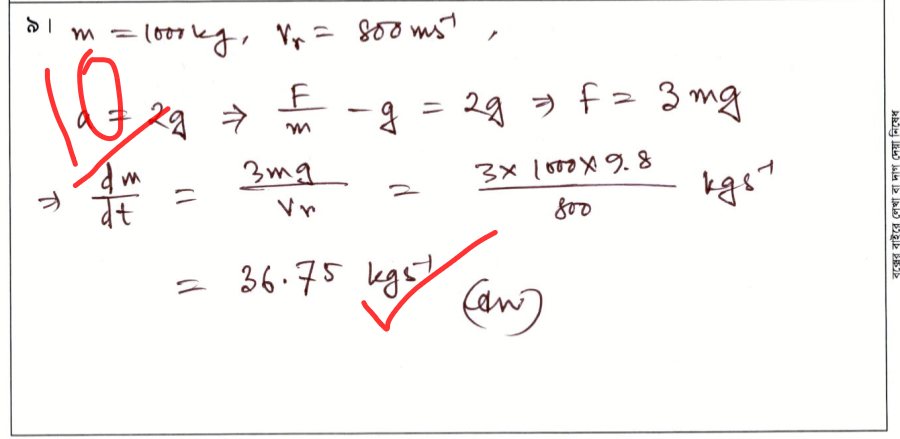 ৯। m = 1000 kg, Vr = 800 ms⁻¹ ,
10
a = 2g ⇒ F/m - g = 2g ⇒ F = 3mg
⇒ dm/dt = 3mg/Vr = 3×1000×9.8/800 kgs⁻¹
= 36.75 kgs⁻¹ (Ans)
বক্সের বাইরে লেখা বা দাগ দেয়া নিষেধ